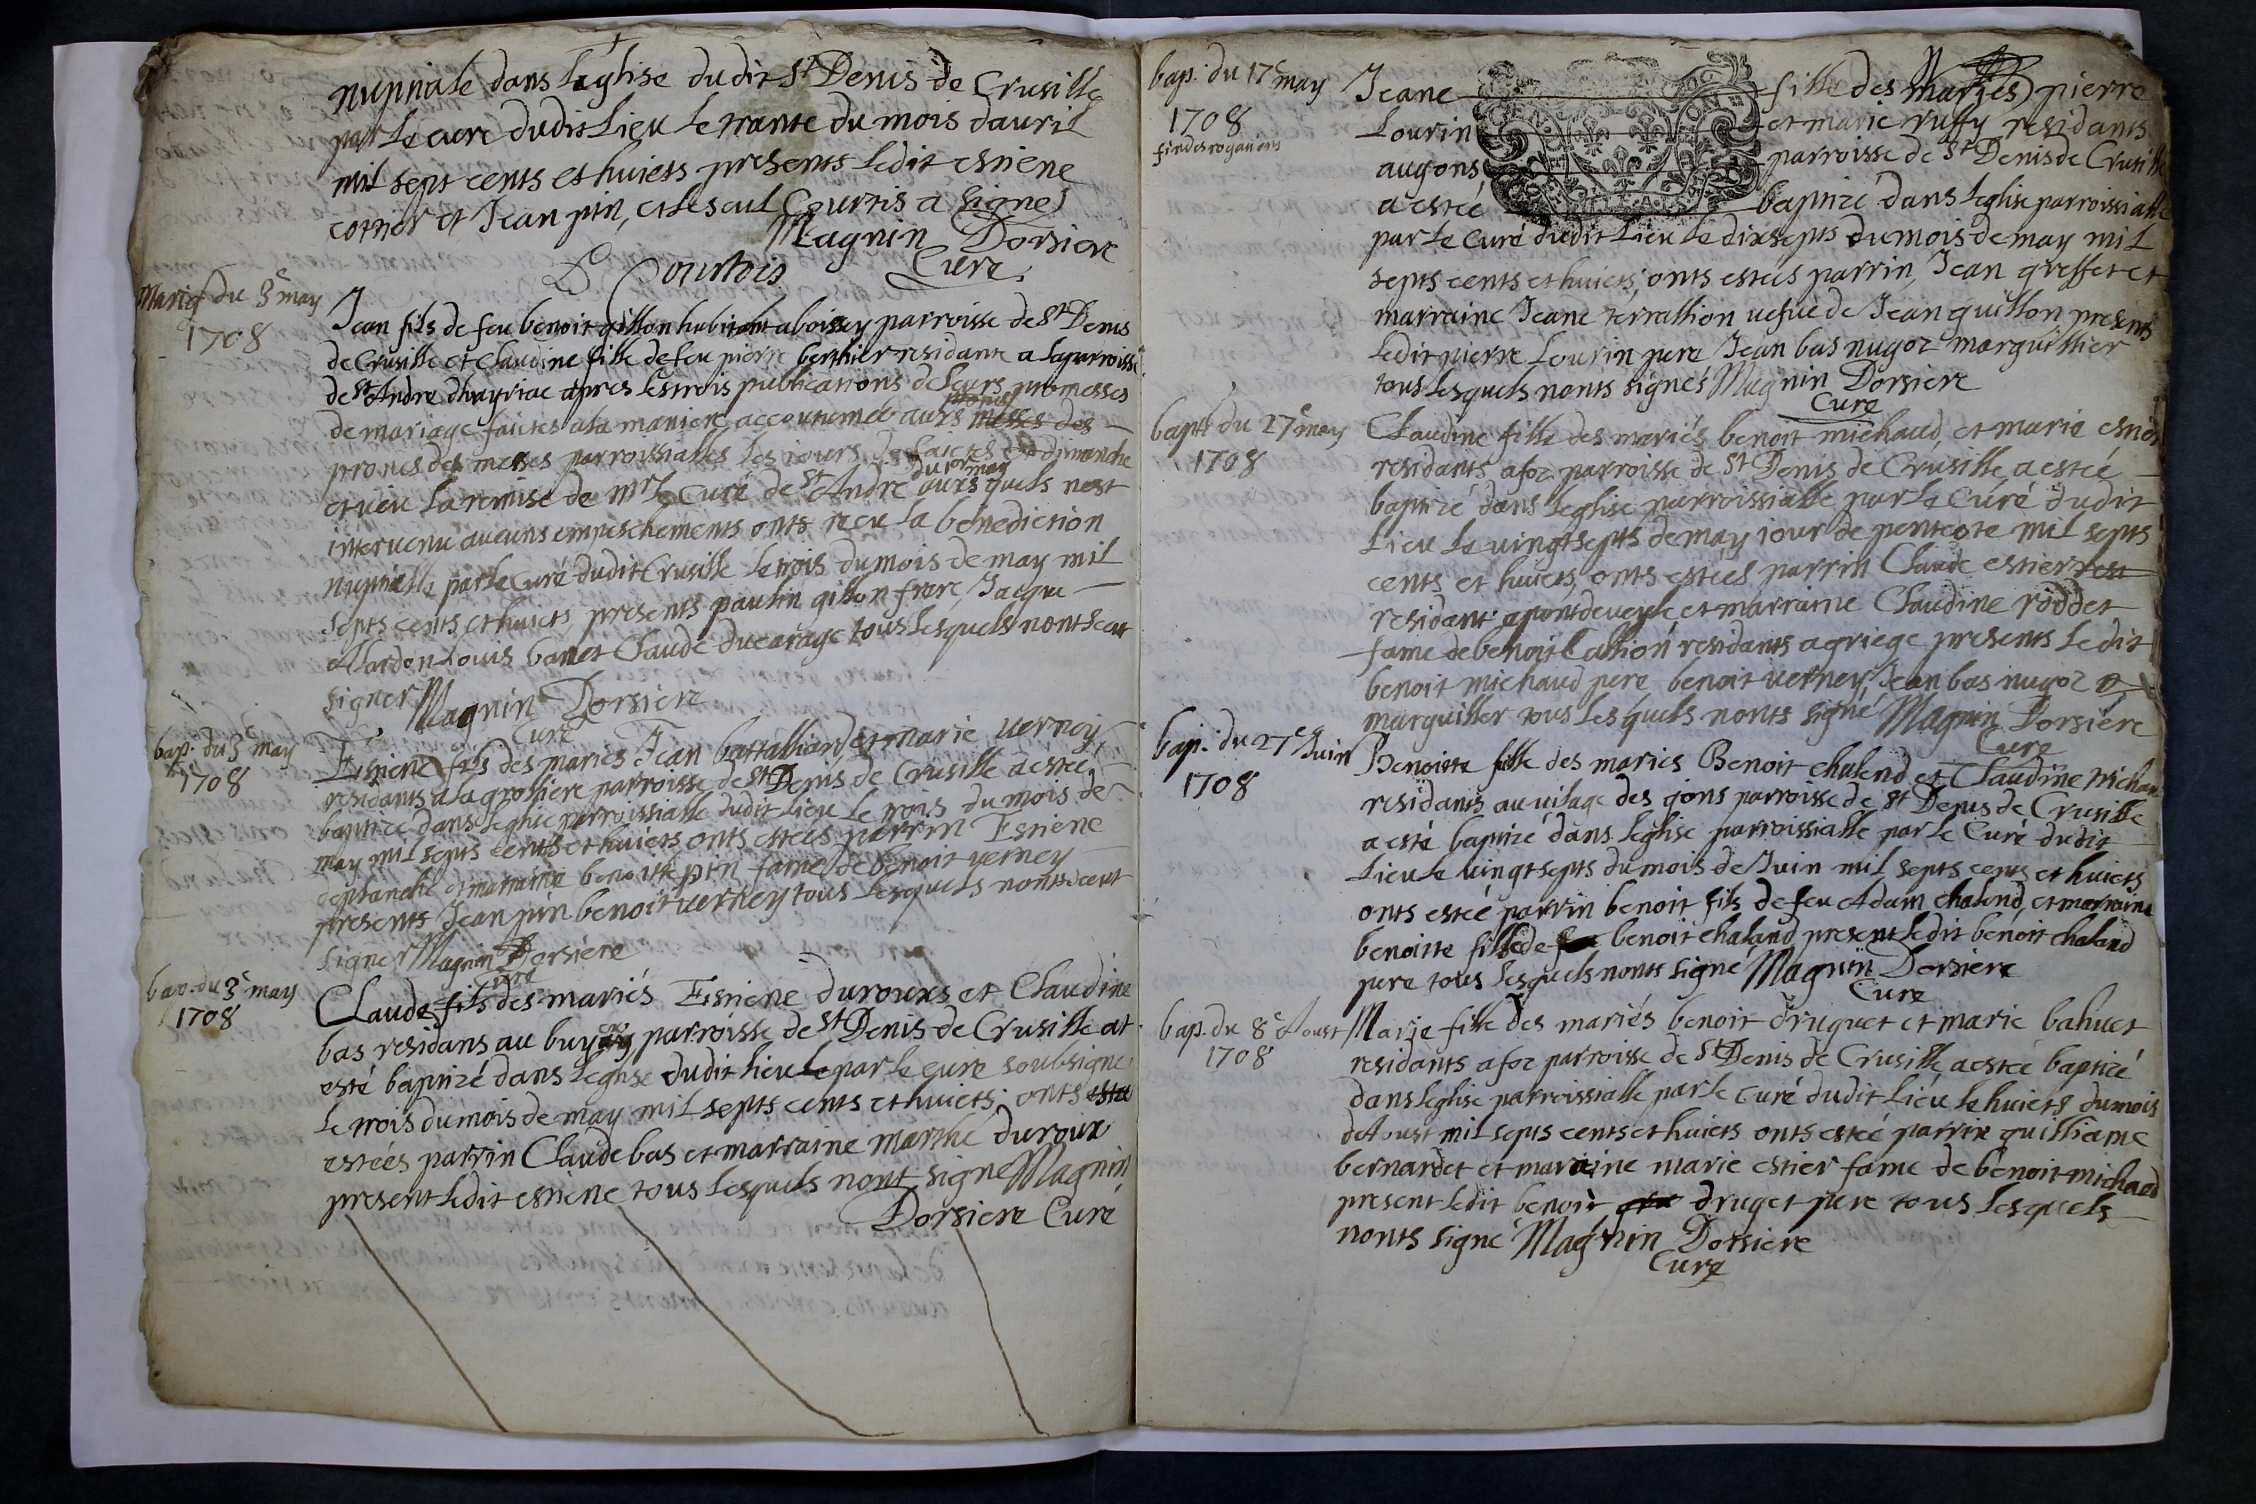 nuptiale dans leglise dudit St Denis de Crusille
par le cure dudit Lieu le trante du mois dauril
mil sept cents et huiets presents ledit estiene
cotrier et Jean pin, et le seul Courtis a signe
Magnin Dorsiere
Cure
Courtois
Mariag du 3e may
1708
Jean fils de feu benoit gillon habitant a boissey parroisse de St Denis
de Crusille et Claudine fille de feu pierre berthier residante a la parroisse
de St Andre dhuyriac apres les trois publications de leurs promesses
de mariage faittes a la maniere accoutumée auxs messes des
prones des messes parroissialles les iours de faietes et dimanche
du 1er may
et ueu la remise de mr le Curé de St André auxs quels nest
interuenu aucuns empeschements onts receu la benediction
nuptialle par le Curé dudit Crusille le trois du mois de may mil
septs cents et huiets presents paulin gillon frere, Jacque
Mardon Louis banet Claude ducarage tous lesquels nont sceut
signer Magnin Dorsiere
Cure
bap. du 3e may
1708
Estiene fils des mariés Jean battalliard et marie uerney
residants a la grossiere parroisse de St Denis de Crusille a estée
baptizé dans leglise parroissialle dudit lieu le trois du mois de
may mil septs cents et huiets onts estees parrin Estiene
deplanche et marraine benoitte pin fame de benoit uerney
presents Jean pin benoit uerney tous lesquels nonts sceut
signer Magnin Dorsiere
Cure
bap. du 3e may
1708
Claude fils des mariés Estiene durouxs et Claudine
bas residans au buy parroisse de St Denis de Crusille at
esté baptizé dans leglise dudit lieu le par le cure soubsigne
le trois du mois de may mil septs cents et huiets onts esté
estées parrin Claude bas et marraine marthe duroux
present ledit estiene tous lesquels nont signe Magnin
Dorsiere Curé
bap. du 17e may
1708
fin des rogations
Jeane fille des mariés pierre
Lourin et marie ruffy residants
au gons parroisse de St Denis de Crusille
a estée baptizé dans leglise parroissialle
par le Curé dudit Lieu le dixsepts du mois de may mil
septs cents et huiets, onts estées parrin, Jean greffet et
marraine Jeane terrallion uefue de Jean guillon presents
ledit pierre Lourin pere Jean bas nugoz marguillier
tous lesquels nonts signés Magnin Dorsiere
Cure
bapt du 27e may
1708
Claudine fille des mariés benoit michaud, et marie estier
residants a foz parroisse de St Denis de Crusille a estée
baptizé dans leglise parroissialle par le Curé dudit
Lieu le uingt septs de may iour de pentcote mil septs
cents et huiets, onts estées parrin Claude estier rest
residant a pontdeueyle et marraine Claudine roddet
fame de benoit Callion residants a griege presents ledit
benoit michaud pere benoit uerney Jean bas nugoz
marguiller tous lesquels nonts signé Magnin Dorsiére
Cure
bap. du 27e Juin
1708
Benoitte fille des mariés Benoit chalend et Claudine michau
residants au uilage des gons parroisse de St Denis de Crusille
a esté baptizé dans leglise parroissialle par le Curé dudit
Lieu le uingt septs du mois de Juin mil septs cents et huiets
onts estée parrin benoit fils de feu Adam chalend, et marraine
benoitte fille de benoit chaland present ledit benoit chaland
pere tous lesquels nonts signé Magnin Dorsiere
Cure
bap. du 8e Aoust
1708
Marie fille des mariés benoit druguet et marie bahuet
residants a foz parroisse de St Denis de Crusille a estée baptizé
dans leglise parroissialle par le curé dudit Lieu le huiets du mois
de Aoust mil septs cents et huiets onts estée parrin guilliame
bernardet et maraine marie estier fame de benoit michaud
present ledit benoit druget pere tous lesquels
nonts signé Magnin Dorsiere
Cure